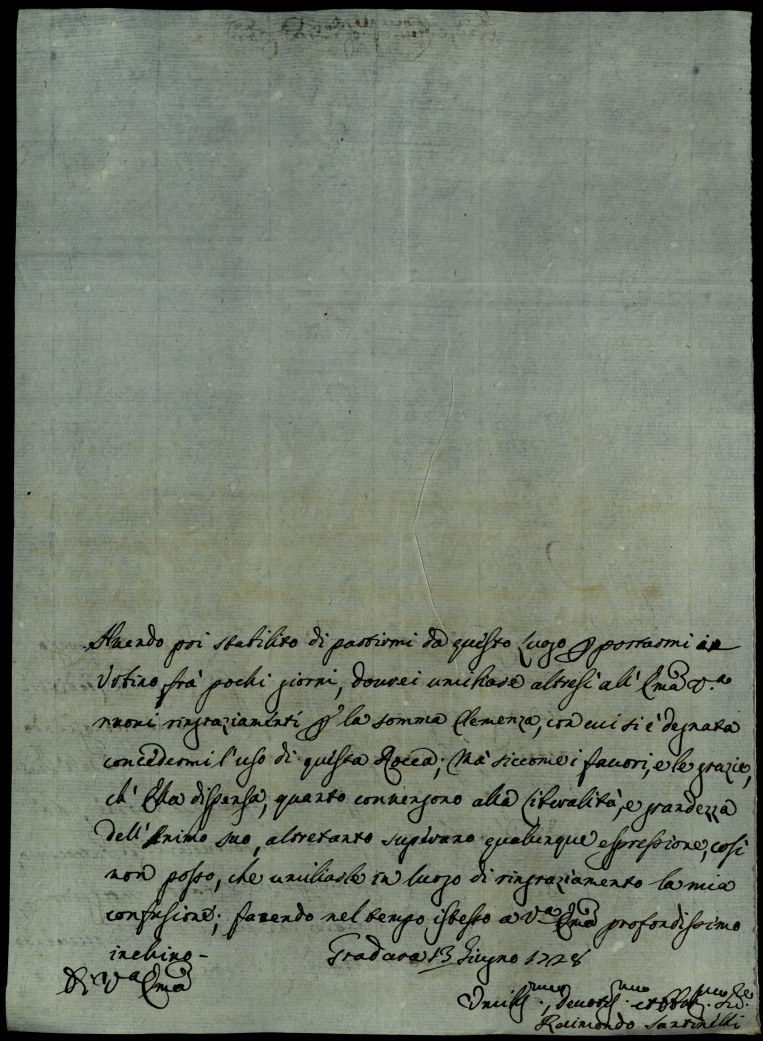 Avendo poi stabilito di partirmi da questo Luogo p portarmi in
Urbino frà pochi giorni, dourei umiliare altresì all' Ema V.ra
nuovi ringraziamenti p la somma Clemenza, con cui si è degnata
concedermi l'uso di questa Rocca; Mà siccome i fauori, e le grazie,
ch' Ella dispensa, quanto convengono alla liberalità, e grandezza
dell' Animo suo, altretanto superano qualunque espressione, così
non posso, che umiliarle in luogo di ringraziamento la mia
confusione; facendo nel tempo istesso a V.a Ema profondissimo
inchino -
Gradara 13 Giugno 1728
Di V.a Ema
Umiliss.mo, Deuotiss.mo et Obb.mo Se.re
Raimondo Santinelli